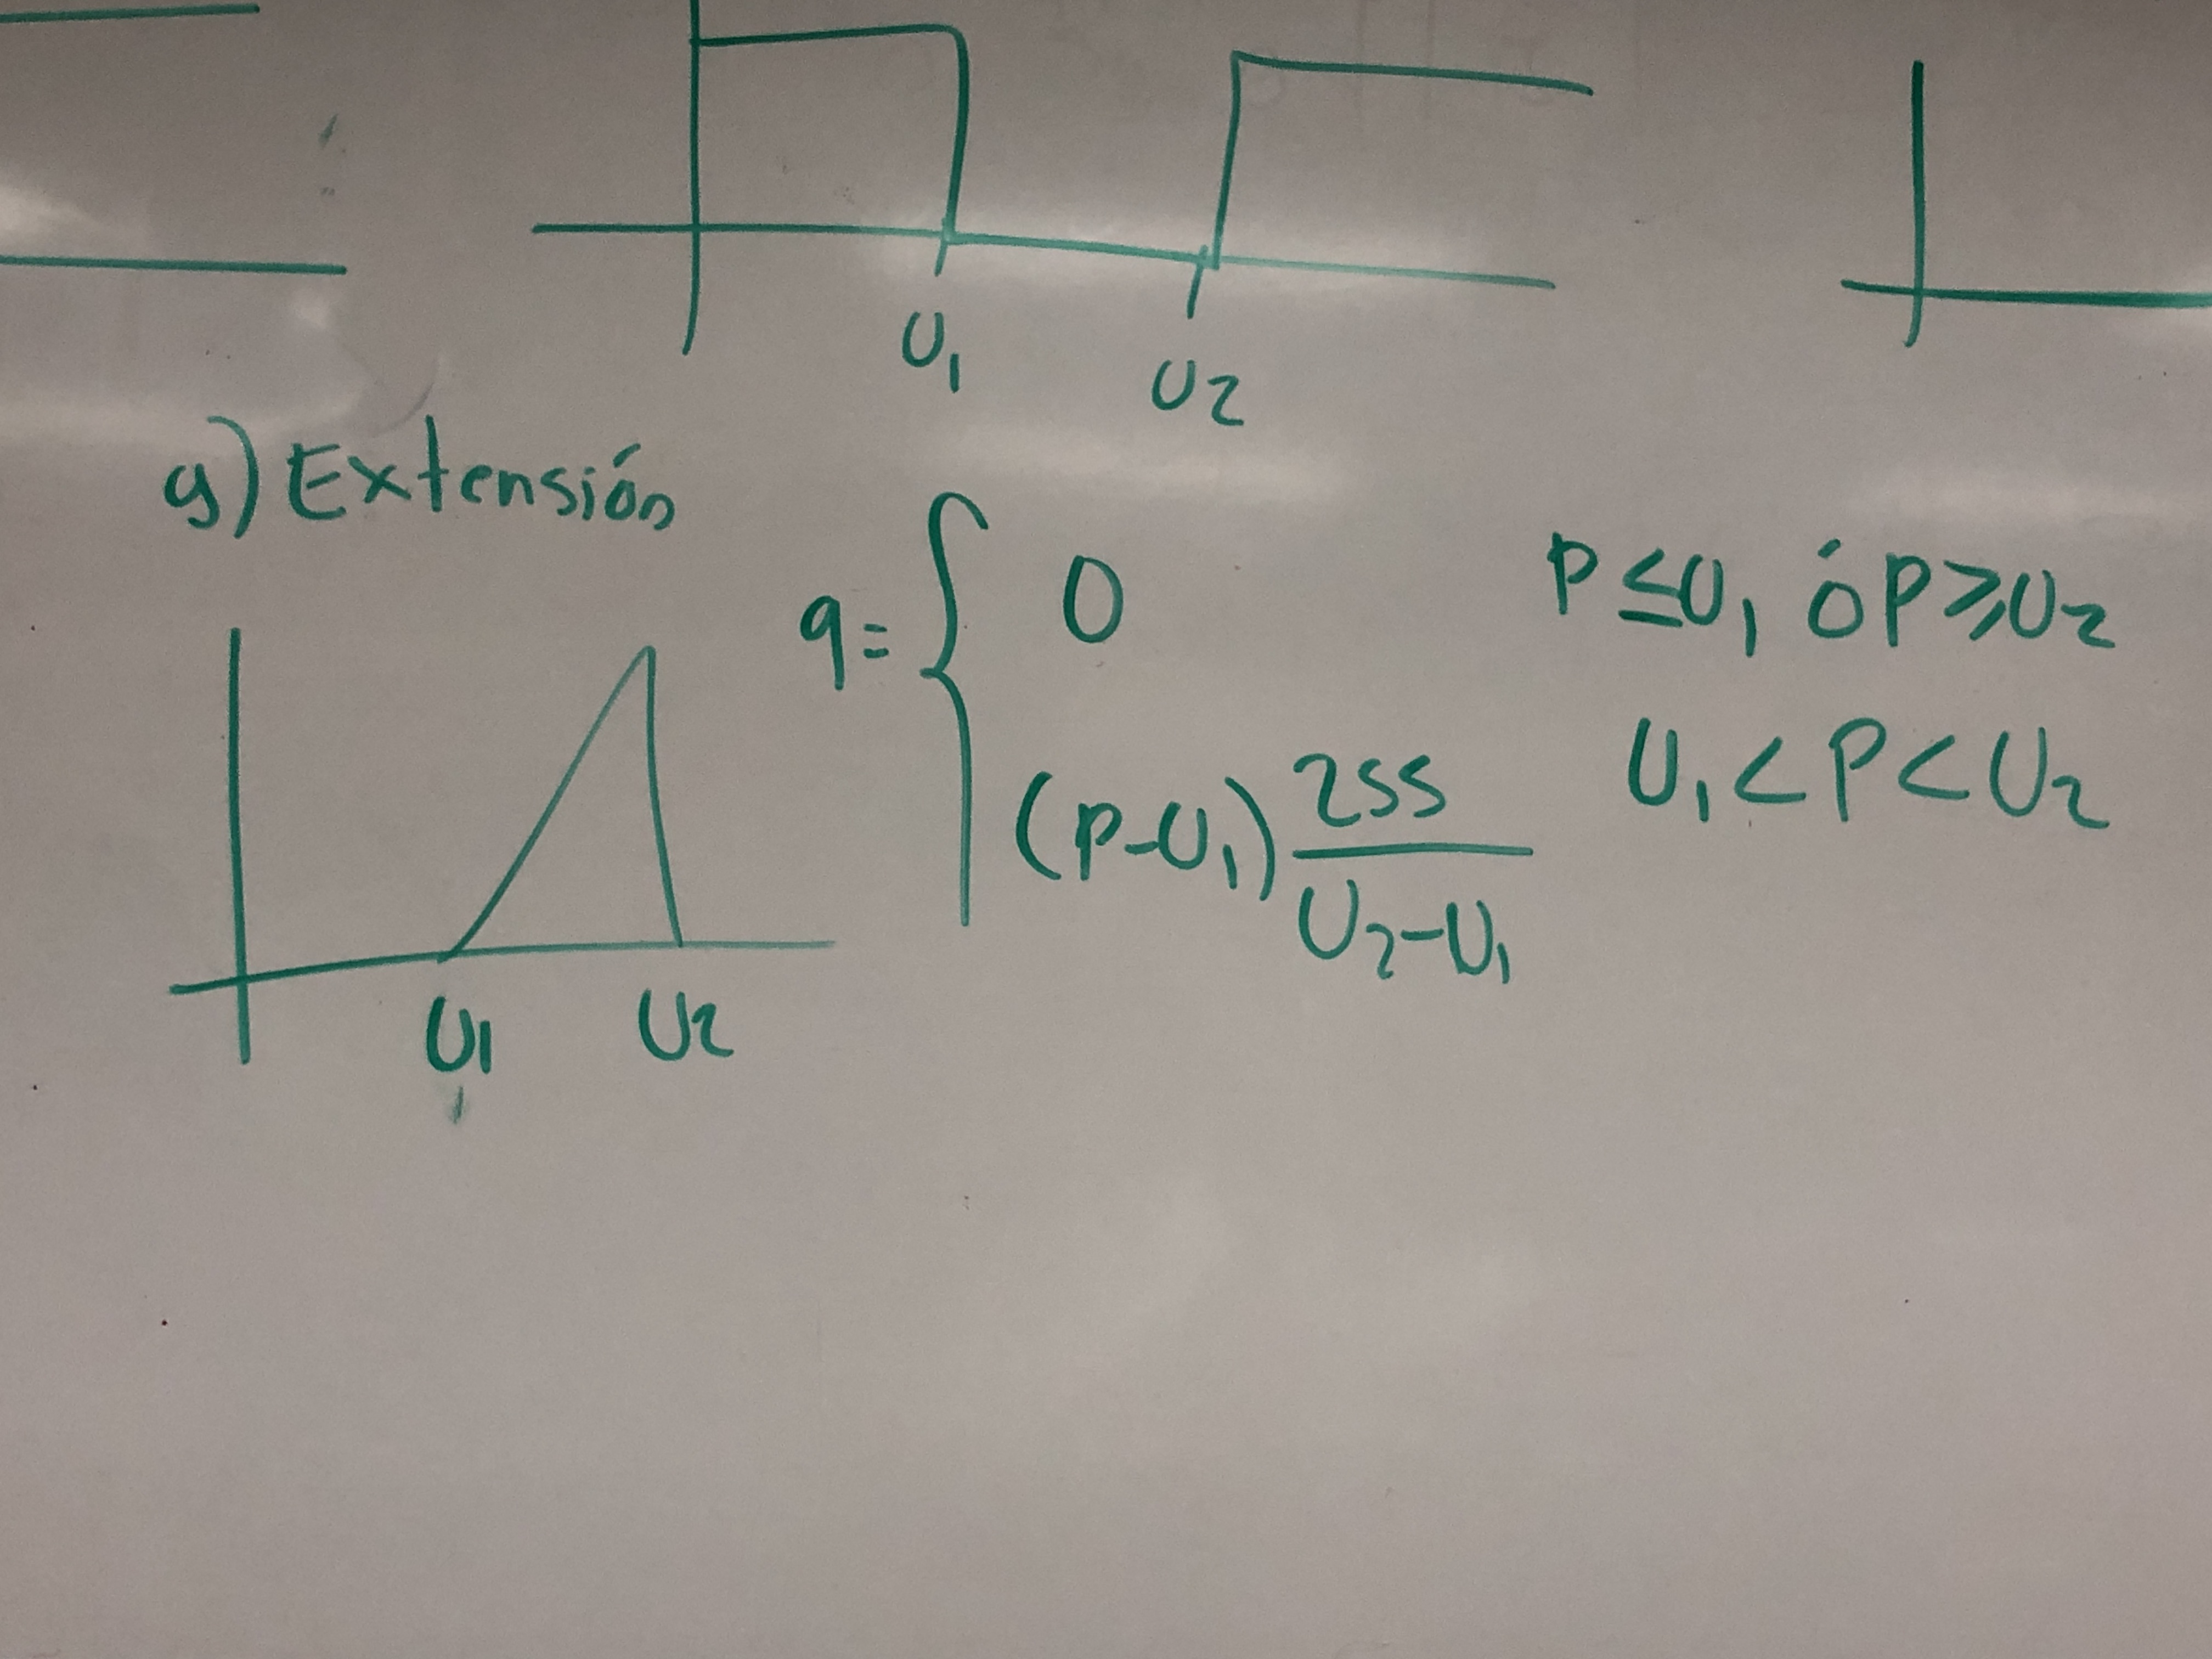 U1
U2
g) Extensión
q = { 0 P ≤ U1 ó P ≥ U2
(p-U1) 255 / U2-U1 U1 < P < U2
U1 U2